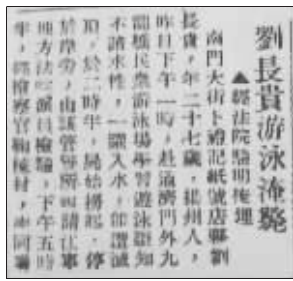 劉長貴游泳淹斃
▲經法院驗明掩埋
南門大街卜禮記紙號店夥劉
長貴，年二十七歲，揚州人，
昨日下午一時，赴通濟門外九
龍橋民衆游泳場學習游泳詎知
不諳水性，一躍入水，卽遭滅
頂，於二時半，屍始撈起，停
於岸旁，由該管警所函請江寧
地方法院派員檢驗，下午五時
半，經檢察官 掩材，